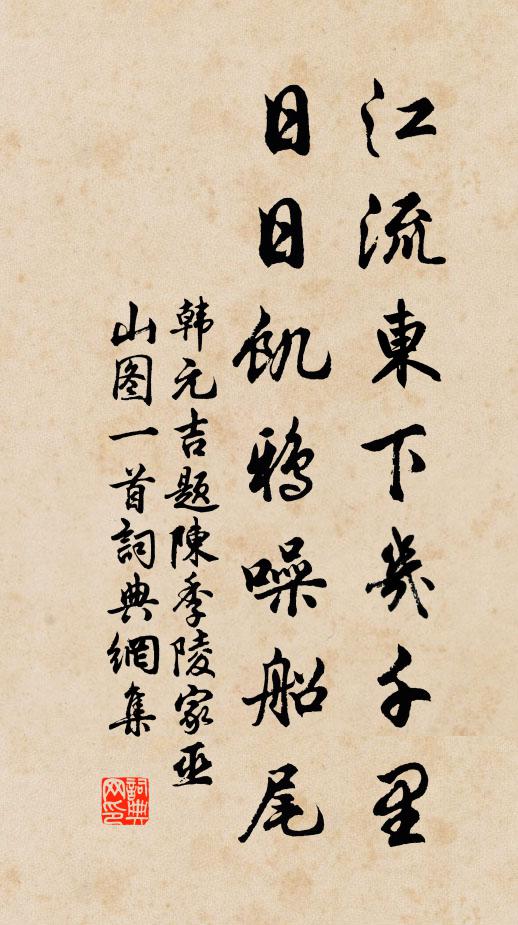 江流東下幾千里
日日飢鴉噪船尾
韩元吉题陳季陵家巫
山图一首詞典網集
詞典网印